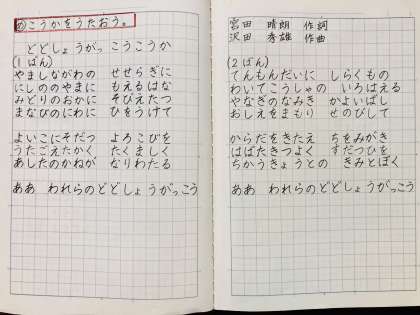 めこうかをうたおう。
どどしょうがっこうこうか
(1ばん)
やましながわの せせらぎに
にしののやまに もえるはな
みどりのおかに そびえたつ
まなびのにわに ひをうけて
よいこにそだつ よろこびを
うたごえたかく たくましく
あしたのかねが なりわたる
ああ われらのどどしょうがっこう
宮田 晴朗 作詞
沢田 秀雄 作曲
(2ばん)
てんもんだいに しらくもの
わいてこうしゃの いろはえる
やなぎのなみき かよいばし
おしえをまもり せのびして
からだをきたえ ちをみがき
はばたきつよく すだつひを
ちかうきょうとの きみとぼく
ああ われらのどどしょうがっこう